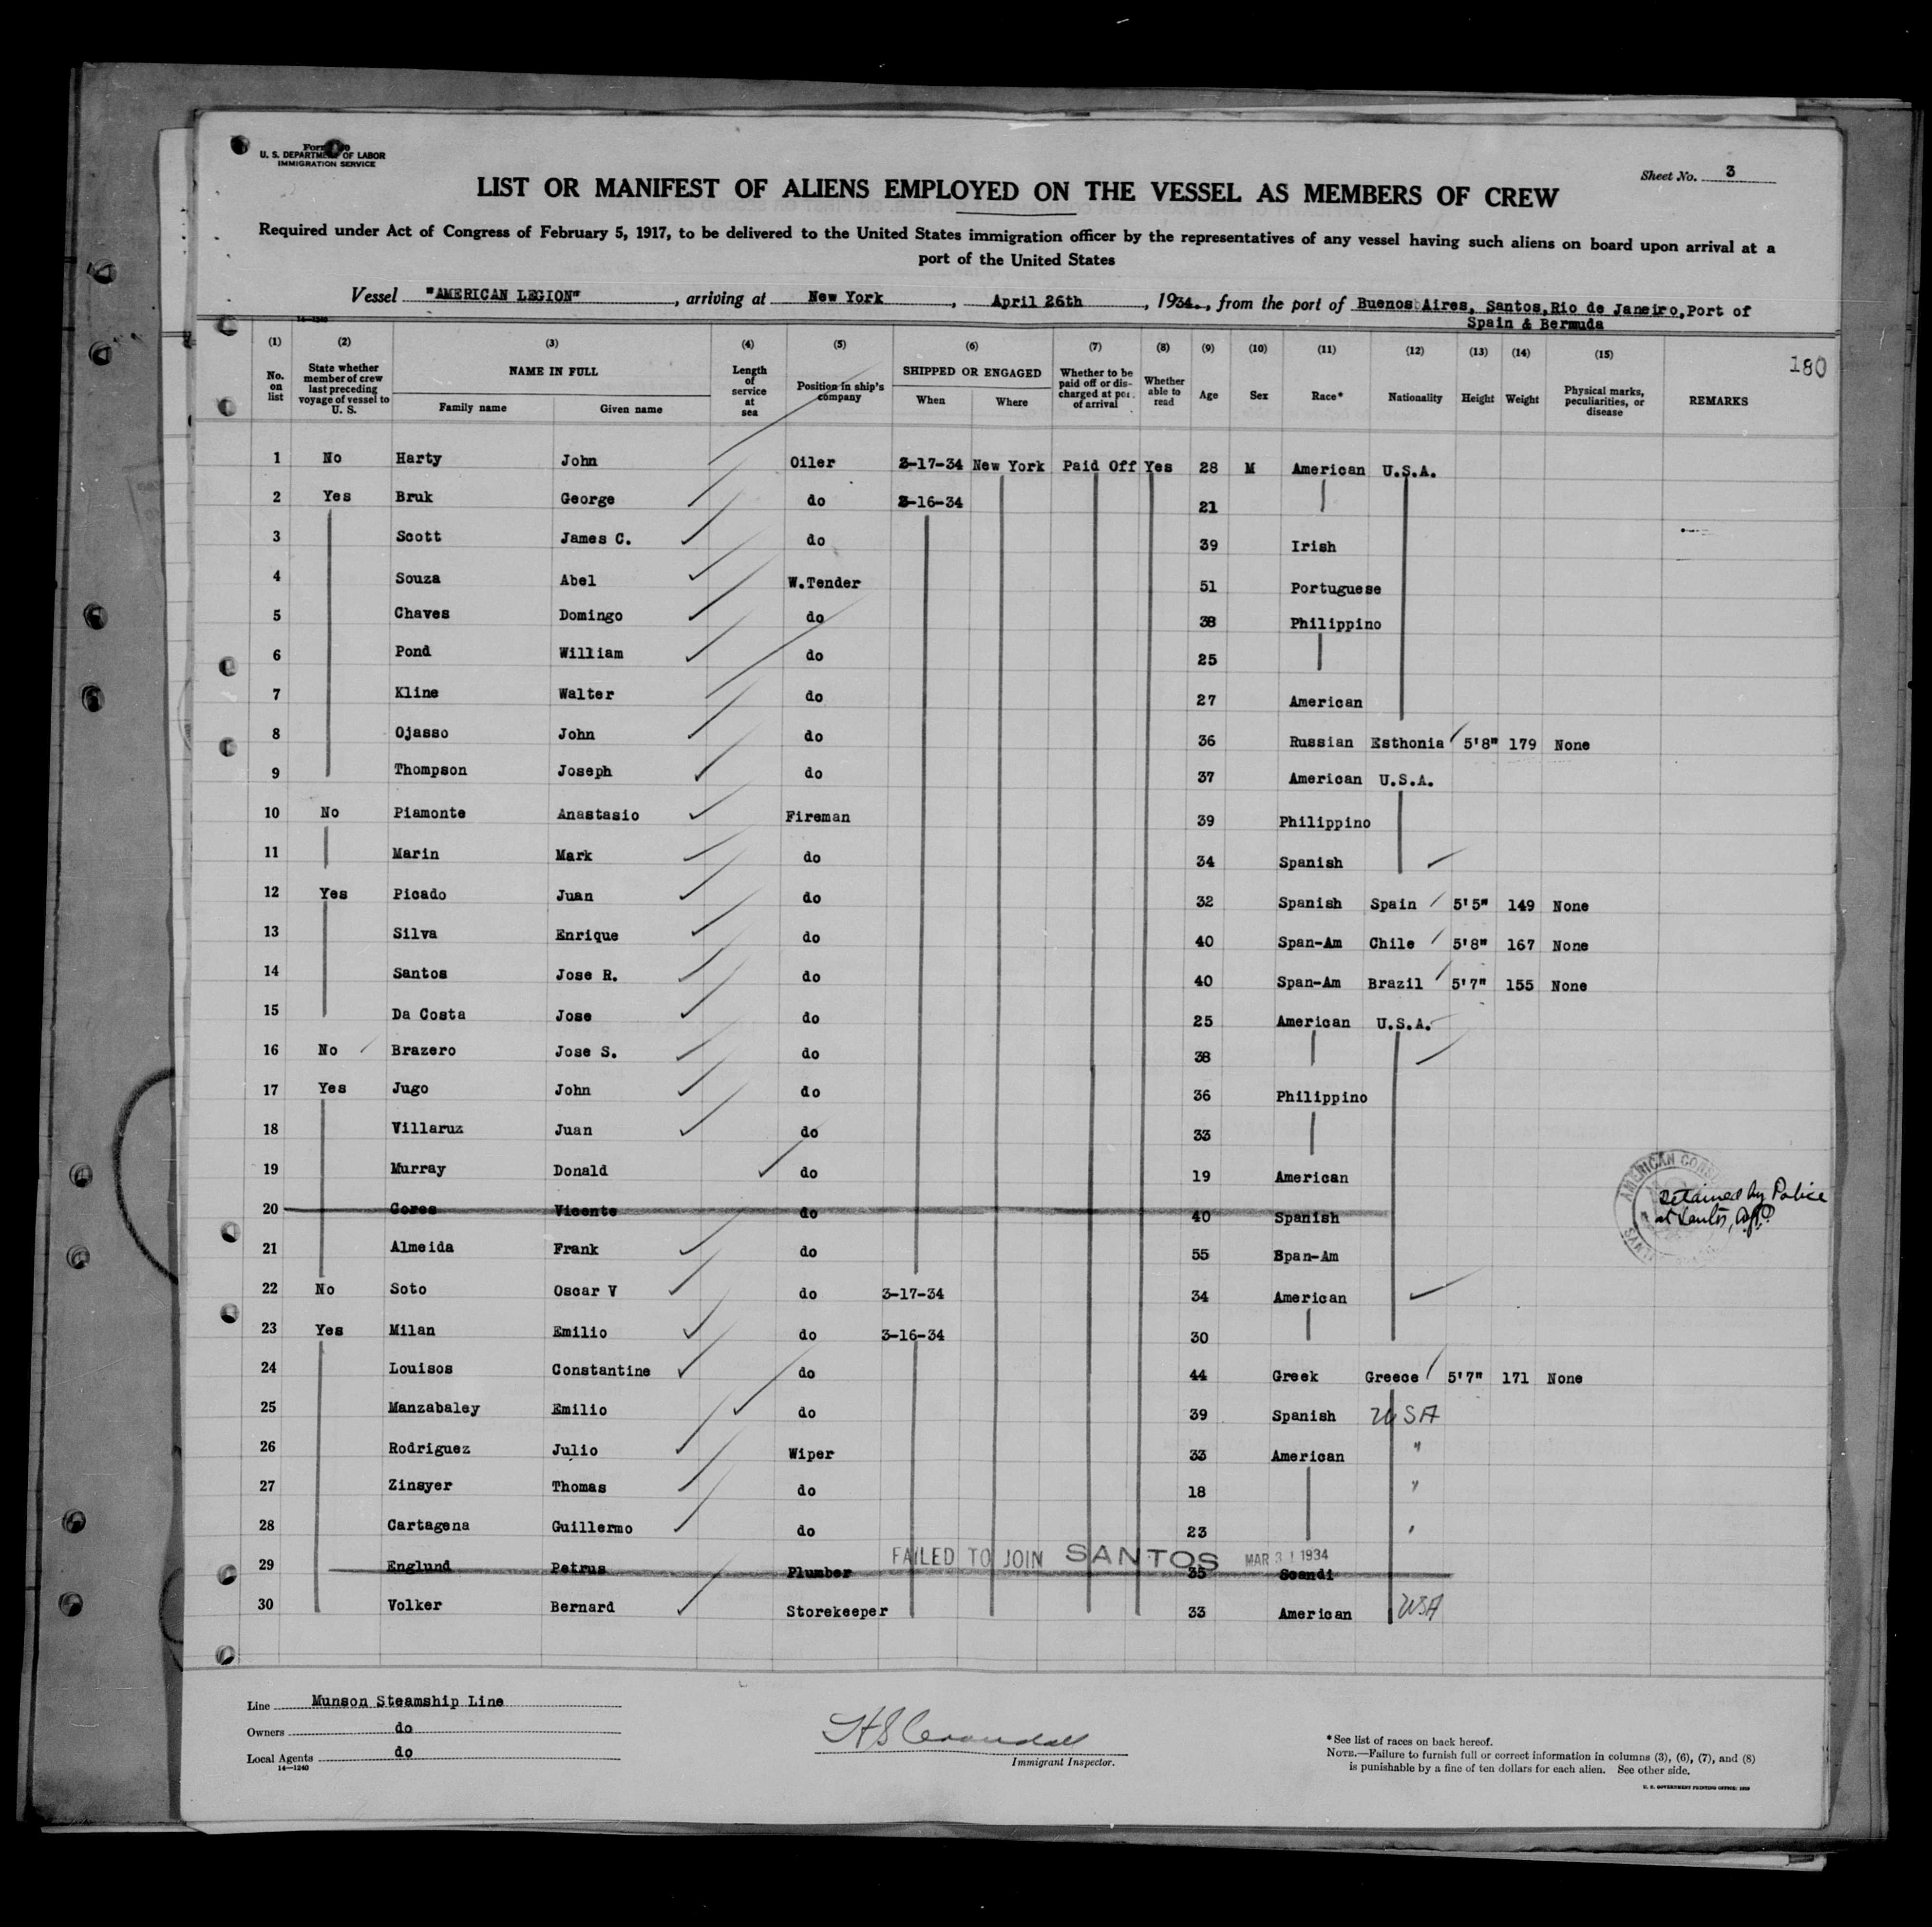 U. S. DEPARTMENT OF LABOR
IMMIGRATION SERVICE
Sheet No. 3
LIST OR MANIFEST OF ALIENS EMPLOYED ON THE VESSEL AS MEMBERS OF CREW
Required under Act of Congress of February 5, 1917, to be delivered to the United States immigration officer by the representatives of any vessel having such aliens on board upon arrival at a
port of the United States
Vessel "AMERICAN LEGION", arriving at New York, April 26th, 1934., from the port of Buenos Aires, Santos, Rio de Janeiro, Port of
Spain & Bermuda
14—1240
180
(1) (2) (3) (4) (5) (6) (7) (8) (9) (10) (11) (12) (13) (14) (15)
No. on list
State whether member of crew last preceding voyage of vessel to U. S.
NAME IN FULL
Family name
Given name
Length of service at sea
Position in ship's company
SHIPPED OR ENGAGED
When
Where
Whether to be paid off or discharged at port of arrival
Whether able to read
Age
Sex
Race*
Nationality
Height
Weight
Physical marks, peculiarities, or disease
REMARKS
1 No Harty John Oiler 3-17-34 New York Paid Off Yes 28 M American U.S.A.
2 Yes Bruk George do 3-16-34 21
3 Scott James C. do 39 Irish
4 Souza Abel W.Tender 51 Portuguese
5 Chaves Domingo do 38 Philippino
6 Pond William do 25
7 Kline Walter do 27 American
8 Ojasso John do 36 Russian Esthonia 5'8" 179 None
9 Thompson Joseph do 37 American U.S.A.
10 No Piamonte Anastasio Fireman 39 Philippino
11 Marin Mark do 34 Spanish
12 Yes Picado Juan do 32 Spanish Spain 5'5" 149 None
13 Silva Enrique do 40 Span-Am Chile 5'8" 167 None
14 Santos Jose R. do 40 Span-Am Brazil 5'7" 155 None
15 Da Costa Jose do 25 American U.S.A.
16 No Brazero Jose S. do 38
17 Yes Jugo John do 36 Philippino
18 Villaruz Juan do 33
19 Murray Donald do 19 American
20 Gores Vicente do 40 Spanish Detained by Police
at Santos,
21 Almeida Frank do 55 Span-Am
22 No Soto Oscar V do 3-17-34 34 American
23 Yes Milan Emilio do 3-16-34 30
24 Louisos Constantine do 44 Greek Greece 5'7" 171 None
25 Manzabaley Emilio do 39 Spanish USA
26 Rodriguez Julio Wiper 33 American "
27 Zinsyer Thomas do 18 "
28 Cartagena Guillermo do 23 "
FAILED TO JOIN SANTOS MAR 31 1934
29 Englund Petrus Plumber 35 Scandi
30 Volker Bernard Storekeeper 33 American USA
AMERICAN
Line Munson Steamship Line
Owners do
Local Agents do
14—1240
Immigrant Inspector.
* See list of races on back hereof.
NOTE.—Failure to furnish full or correct information in columns (3), (6), (7), and (8)
is punishable by a fine of ten dollars for each alien. See other side.